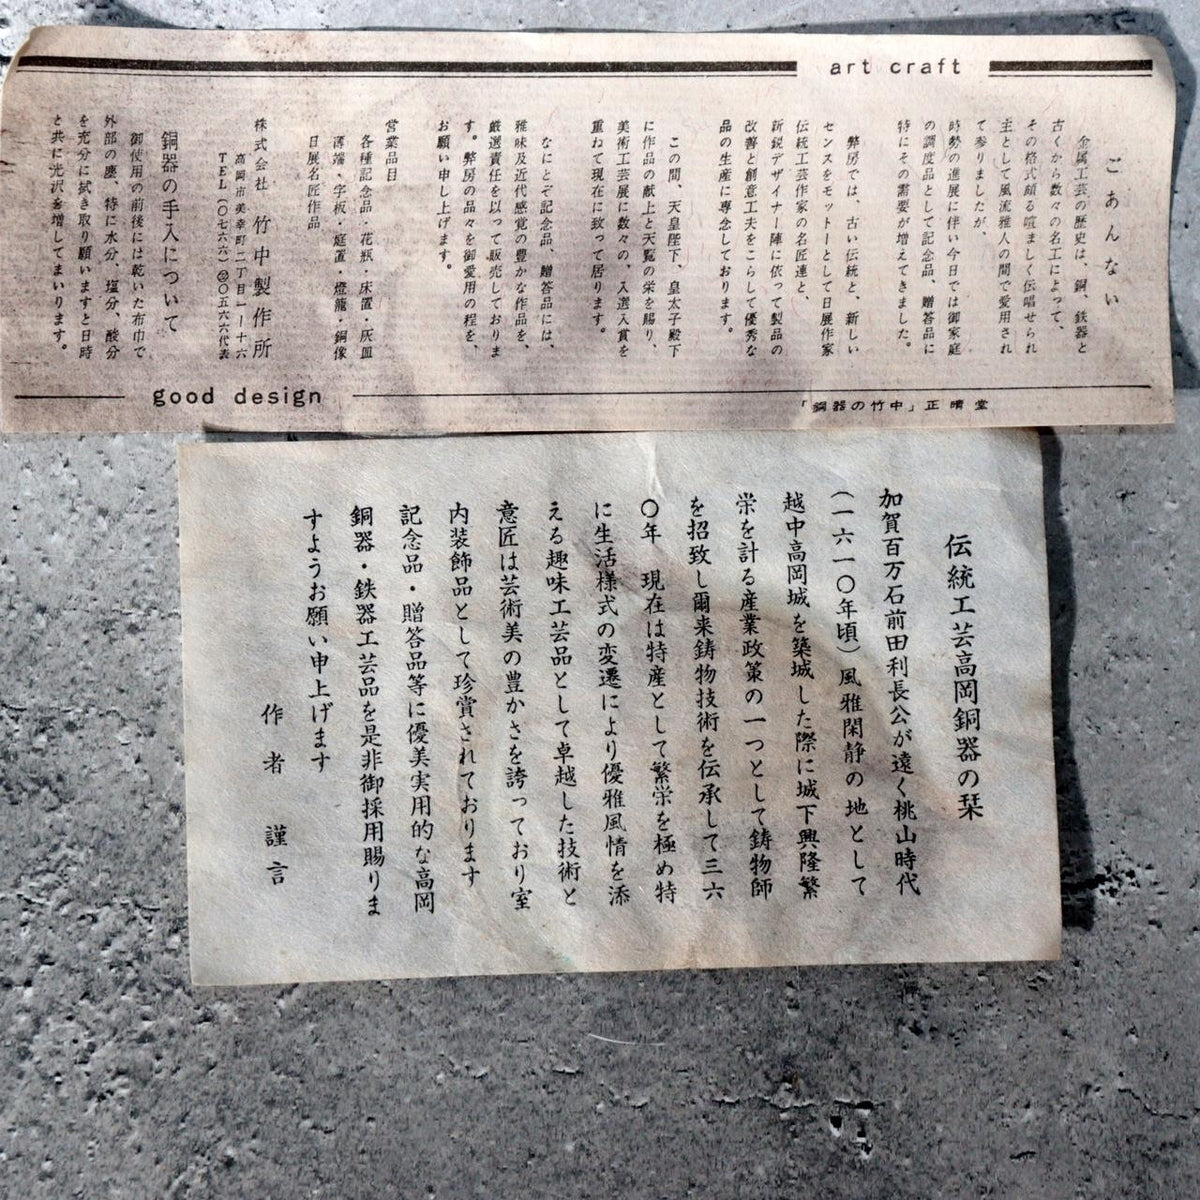 art craft
ごあんない
金属工芸の歴史は、銅、鉄器と
古くから数々の名工によって、
その格式頗る喧ましく伝唱せられ
主として風流雅人の間で愛用され
て参りましたが、
時勢の進展に伴い今日では御家庭
の調度品として記念品、贈答品に
特にその需要が増えてきました。
弊房では、古い伝統と、新しい
センスをモットーとして日展作家
伝統工芸作家の名匠連と、
新鋭デザイナー陣に依って製品の
改善と創意工夫をこらして優秀な
品の生産に専念しております。
この間、天皇陛下、皇太子殿下
に作品の献上と天覧の栄を賜り、
美術工芸展に数々の、入選入賞を
重ねて現在に致って居ります。
なにとぞ記念品、贈答品には、
雅味及近代感覚の豊かな作品を、
厳選責任を以って販売しておりま
す。弊房の品々を御愛用の程を、
お願い申し上げます。
営業品目
各種記念品・花瓶・床置・灰皿
薄端・字板・庭置・燈籠・銅像
日展名匠作品
株式会社 竹中製作所
高岡市美幸町二丁目一ー十六
TEL(〇七六六)㉒〇五六六代表
銅器の手入について
御使用の前後には乾いた布巾で
外部の塵、特に水分、塩分、酸分
を充分に拭き取り願いますと日時
と共に光沢を増してまいります。
good design
「銅器の竹中」正晴堂
伝統工芸高岡銅器の栞
加賀百万石前田利長公が遠く桃山時代
(一六一〇年頃)風雅閑静の地として
越中高岡城を築城した際に城下興隆繁
栄を計る産業政策の一つとして鋳物師
を招致し爾来鋳物技術を伝承して三六
〇年 現在は特産として繁栄を極め特
に生活様式の変遷により優雅風情を添
える趣味工芸品として卓越した技術と
意匠は芸術美の豊かさを誇っており室
内装飾品として珍賞されております
記念品・贈答品等に優美実用的な高岡
銅器・鉄器工芸品を是非御採用賜りま
すようお願い申上げます
作者 謹言